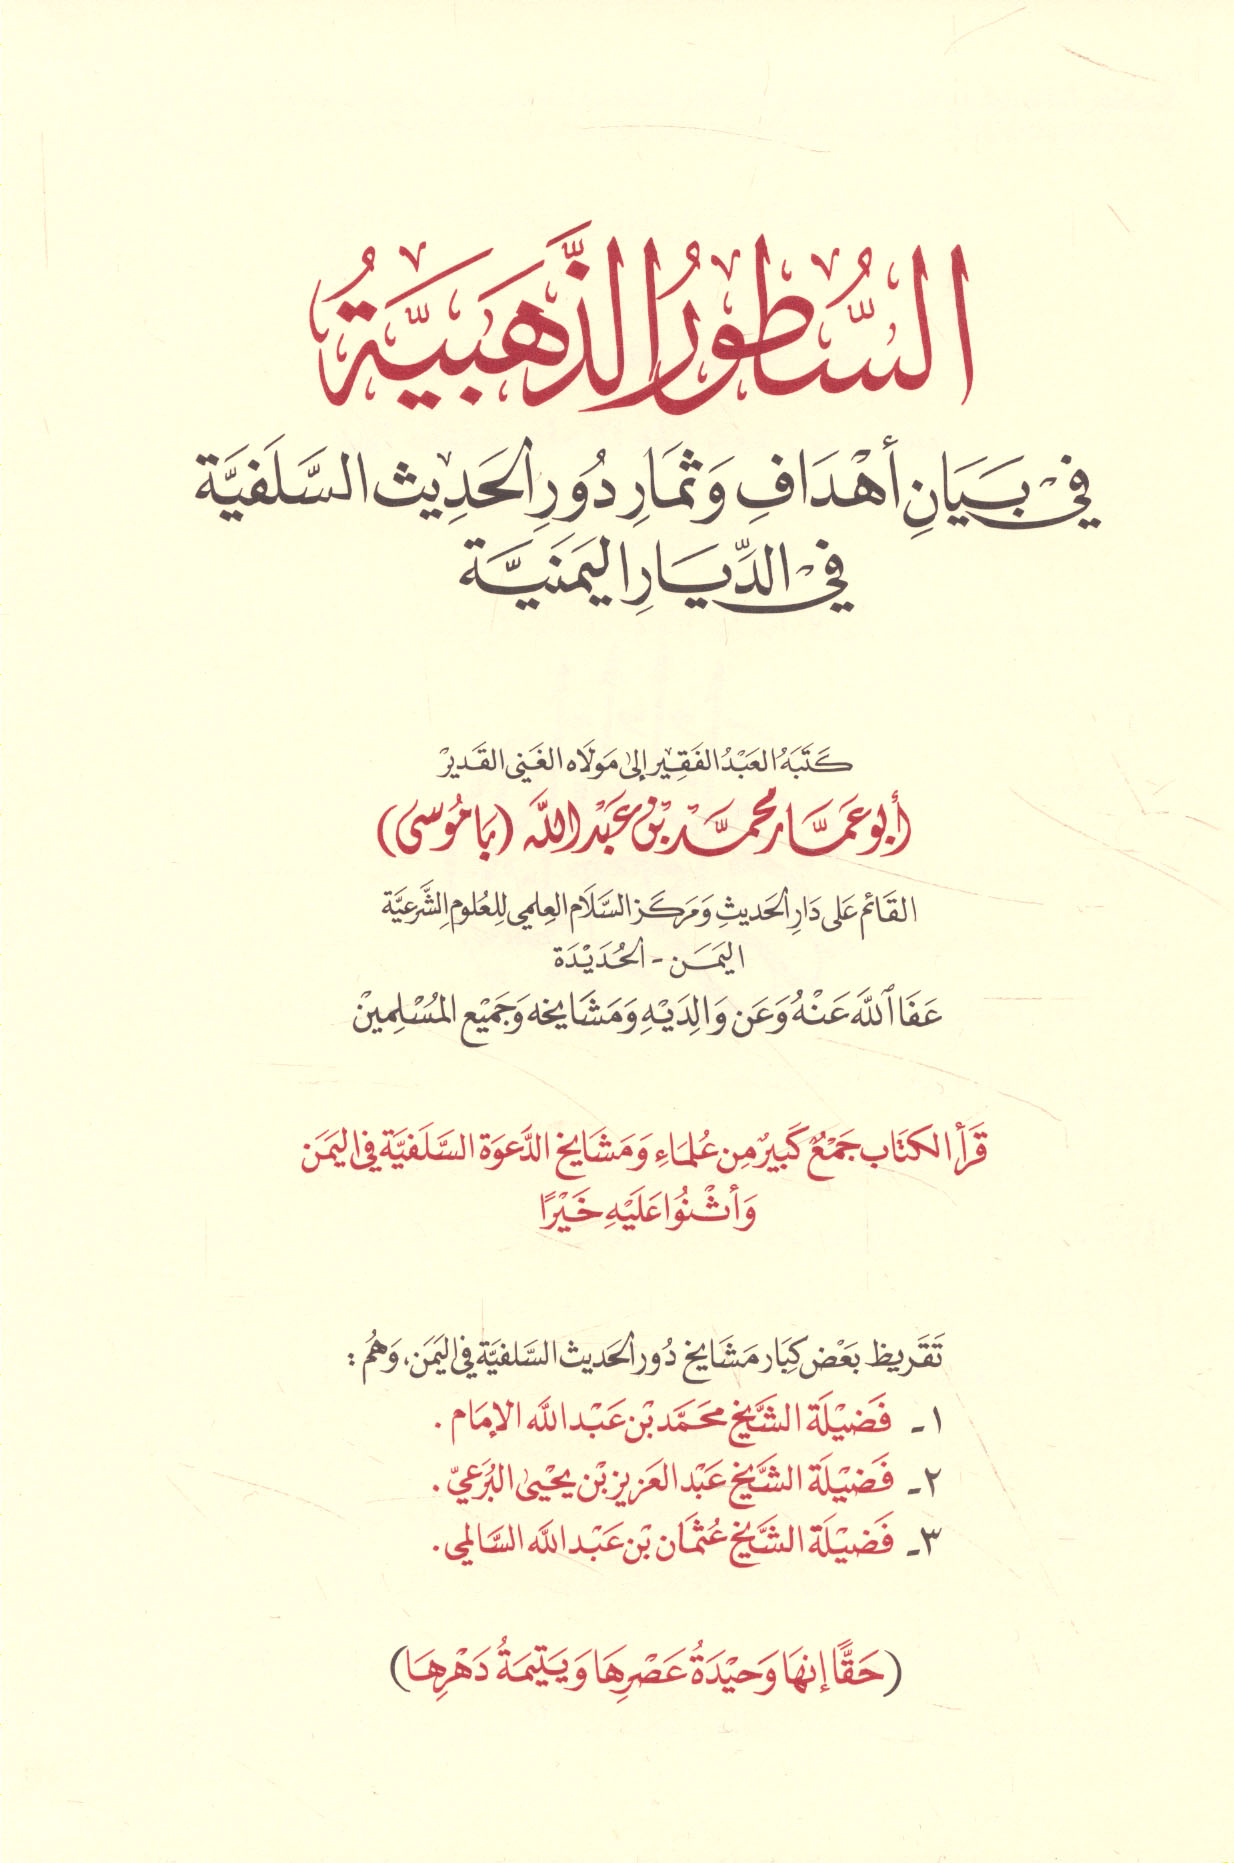 السُّطُورُ الذَّهَبِيَّةُ
فِيْ بَيَانِ أَهْدَافِ وَثمَارِ دُورِ الحَدِيث السَّلَفيَّة
فِيْ الدِّيَارِ اليَمَنيَّة
كَتَبَهُ العَبْدُ الفَقِيْر إلى مَولَاه الغَنِي القَديرْ
أبُو عَمَّار محمَّد بْن عَبْد اللَّه (بَا مُوسَى)
القَائم عَلى دَارِ الحَديثِ وَمَركَز السَّلَام العِلمي لِلعُلوم الشَّرعيَّة
اليَمَن - الحُدَيْدَة
عَفَا ٱللَّه عَنْهُ وَعَن وَالِدَيْهِ وَمَشَايخه وَجَمِيْع المُسْلِمِينْ
قَرَأ الكتَاب جَمْعٌ كَبيرٌ مِن عُلمَاءِ وَمَشَايخ الدَّعوَة السَّلَفيَّة في اليَمَن
وَأثْنُوا عَلَيْهِ خَيْرًا
تَقَريظ بَعْض كِبَار مَشَايخ دُور الحَديث السَّلفيَّة في اليَمَن، وَهُم :
١ـ فَضيْلَة الشَّيخ محَمَّد بْن عَبْد اللَّه الإمَام .
٢ـ فَضيْلَة الشَّيخ عَبْد العَزيز بْن يحْيىٰ البُرَعيّ .
٣ـ فَضيْلَة الشَّيخ عُثمَان بْن عَبْد اللَّه السَّالمي .
(حَقًّا إنهَا وَحيْدَةُ عَصْرِهَا وَيَتيمَةُ دَهْرِهَا)